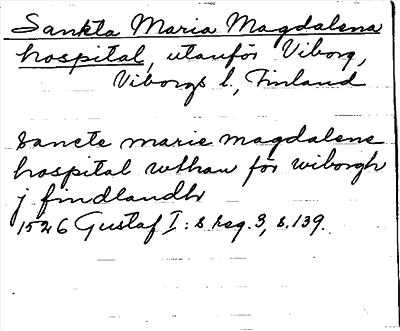 Sankta Maria Magdalena
hospital, utanför Viborg,
Viborgs l., Finland
Sancte marie magdalene
hospital wthan för wiborgh
j findlandh
1526 Gustaf I:s reg. 3, s. 139.